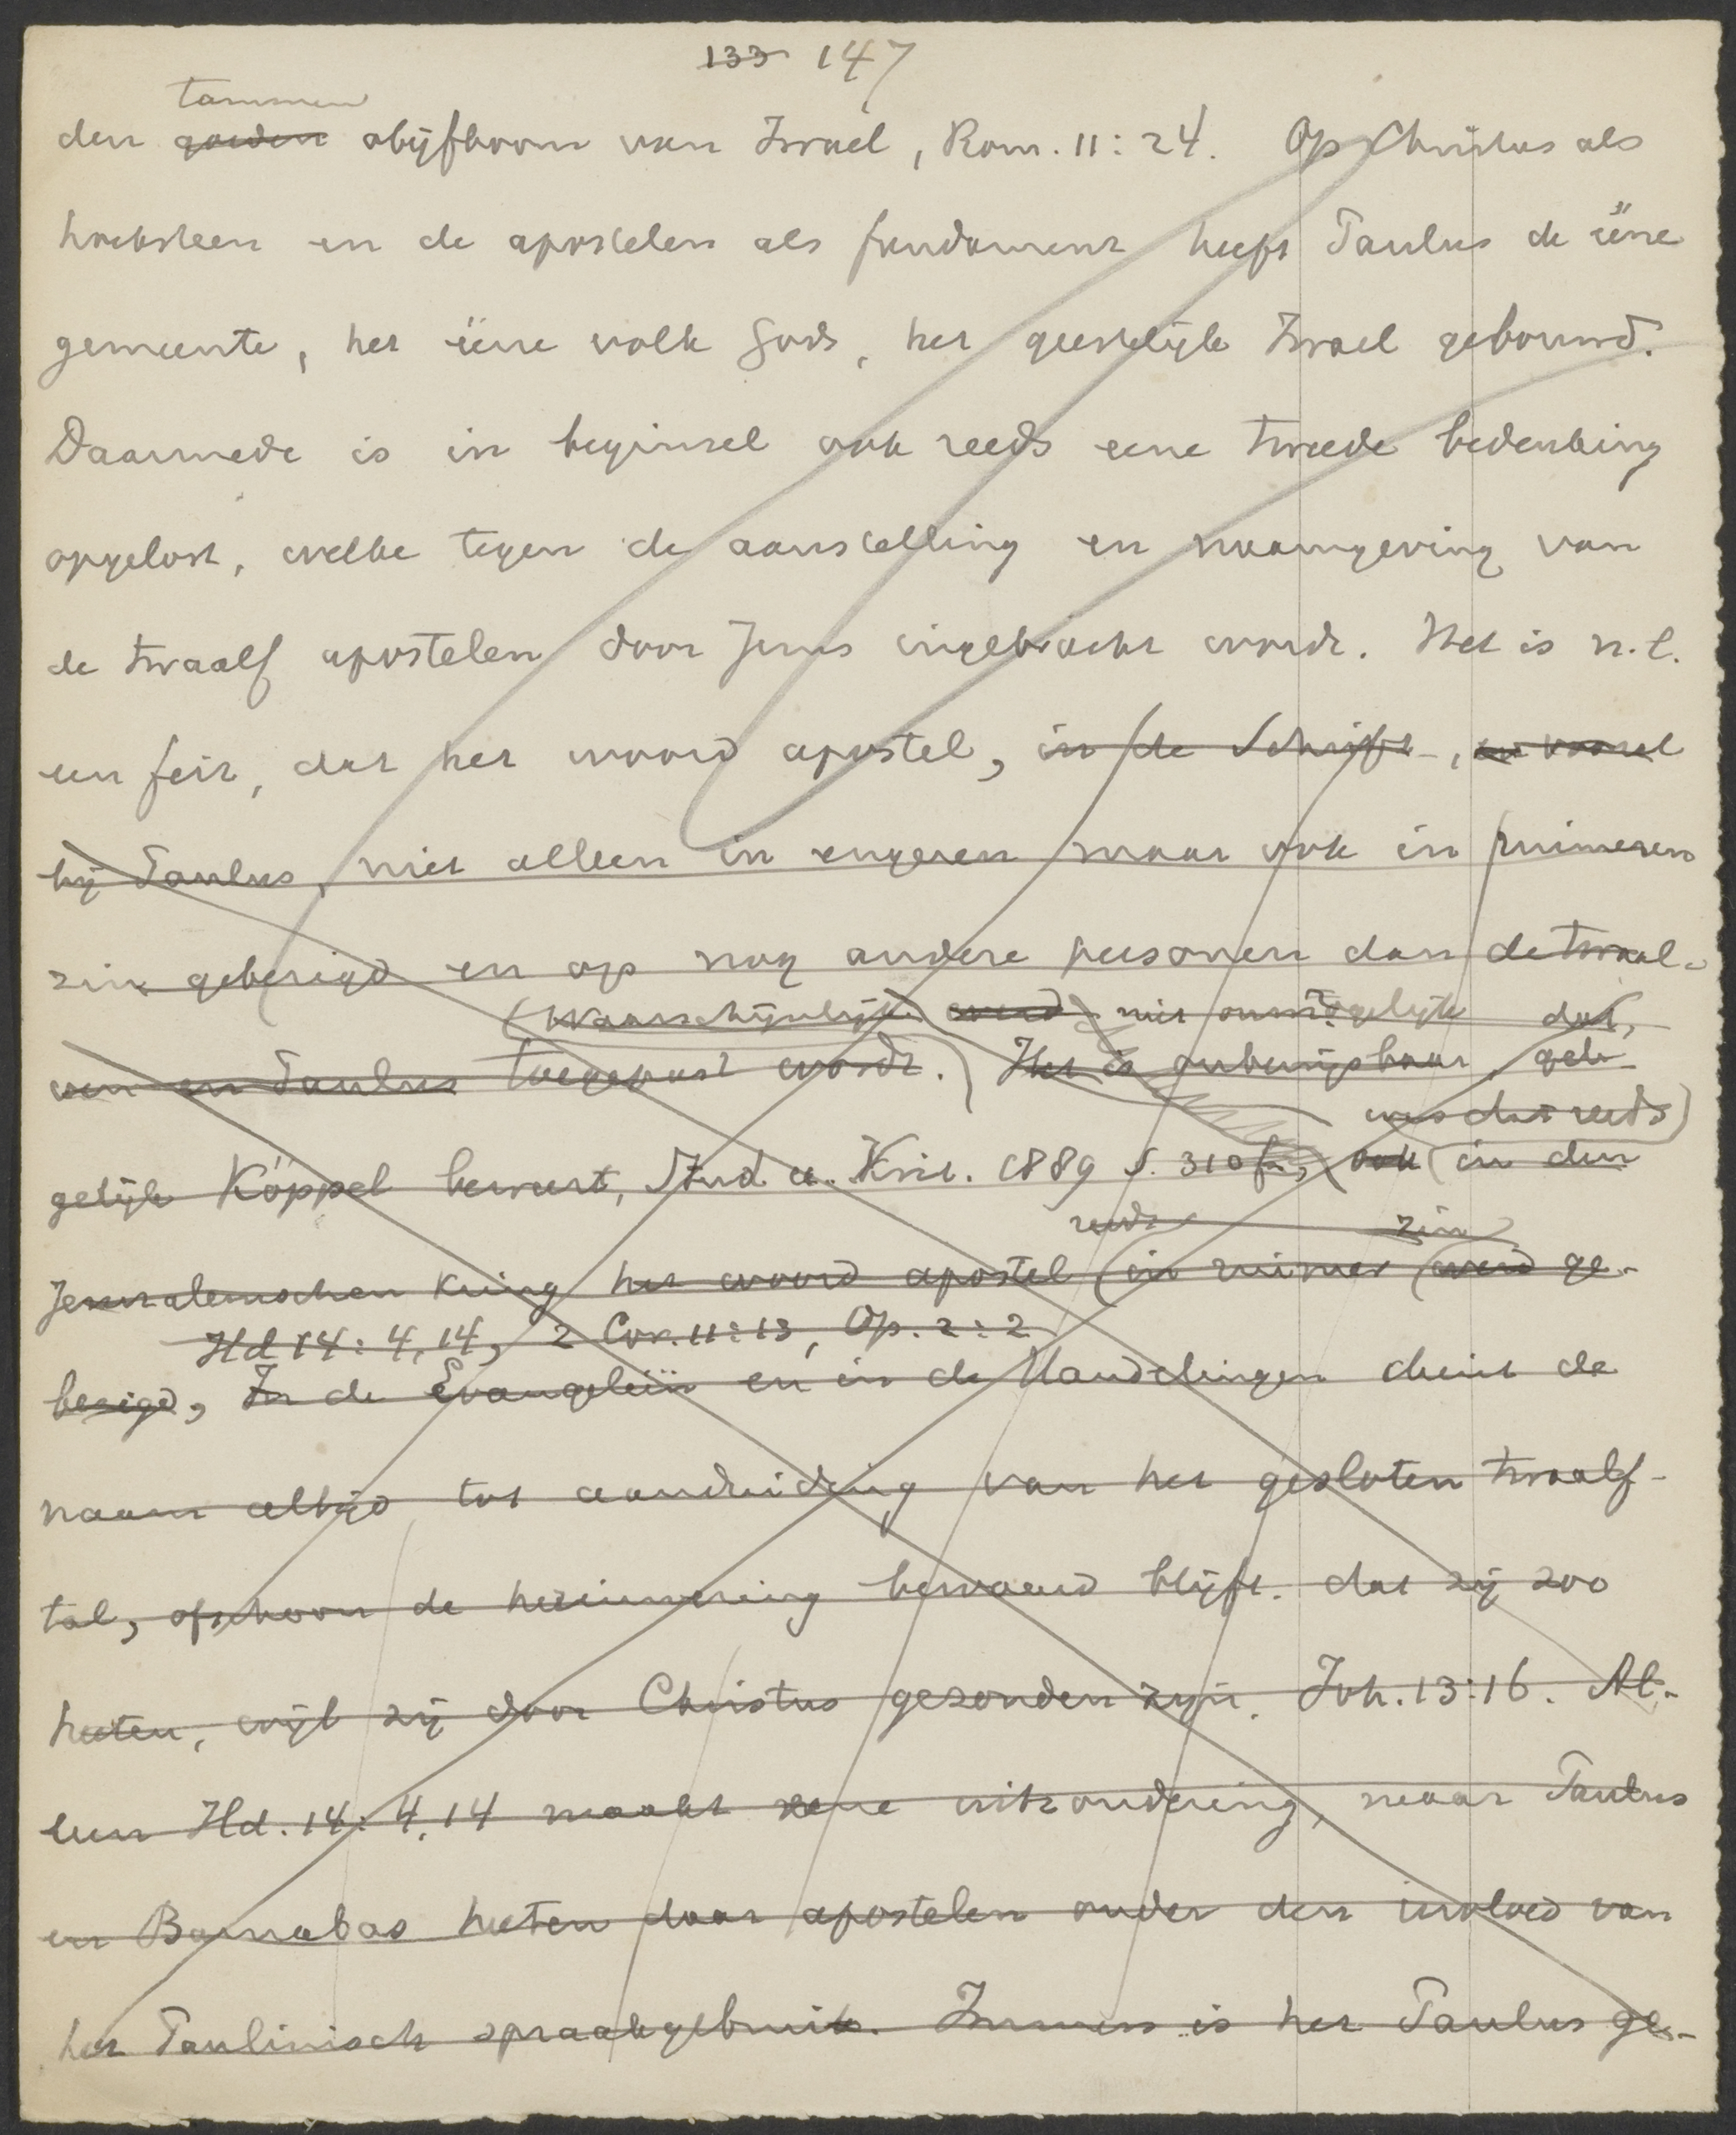 133 147
tammen
den goeden olijfboom van Israel, Rom. 11:24. Op Christus als
hoeksteen en de apostelen als fundament heeft Paulus de ééne
gemeente, het ééne volk Gods, het geestelijk Israel gebouwd.
Daarmede is in beginsel ook reeds eene tweede bedenking
opgelost, welke tegen de aanstelling en naamgeving van
de twaalf apostelen door Jezus ingebracht wordt. Het is n.l.
een feit, dat het woord apostel, in de Schrift, en vooral
bij Paulus, niet alleen in engeren maar ook in ruimeren
zin gebezigd en op nog andere personen dan de twaal-
(Waarschijnlijk werd niet onmogelijk dat,
ven en Paulus toegepast wordt. Het is onbewijsbaar, geh-
was dat reeds)
gelijk Köppel beweert, Stud u. Krit. 1889 S. 310 f., ook in den
reeds zin
Jeruzalemschen kring het woord apostel in ruimer werd ge-
Hd 14:4,14, 2 Cor. 11:13, Op. 2:2
bezigd, In de Evangeliën en in de Handelingen dient de
naam altijd tot aanduiding van het gesloten twaalf-
tal, ofschoon de herinnering bewaard blijft. dat zij zoo
heeten, wijl zij door Christus gezonden zijn. Joh. 13:16. Al-
leen Hd. 14:4,14 maakt eene uitzondering, maar Paulus
en Barnabas heeten daar apostelen onder den invloed van
het Paulinisch spraakgebruik. Immers is het Paulus ge-